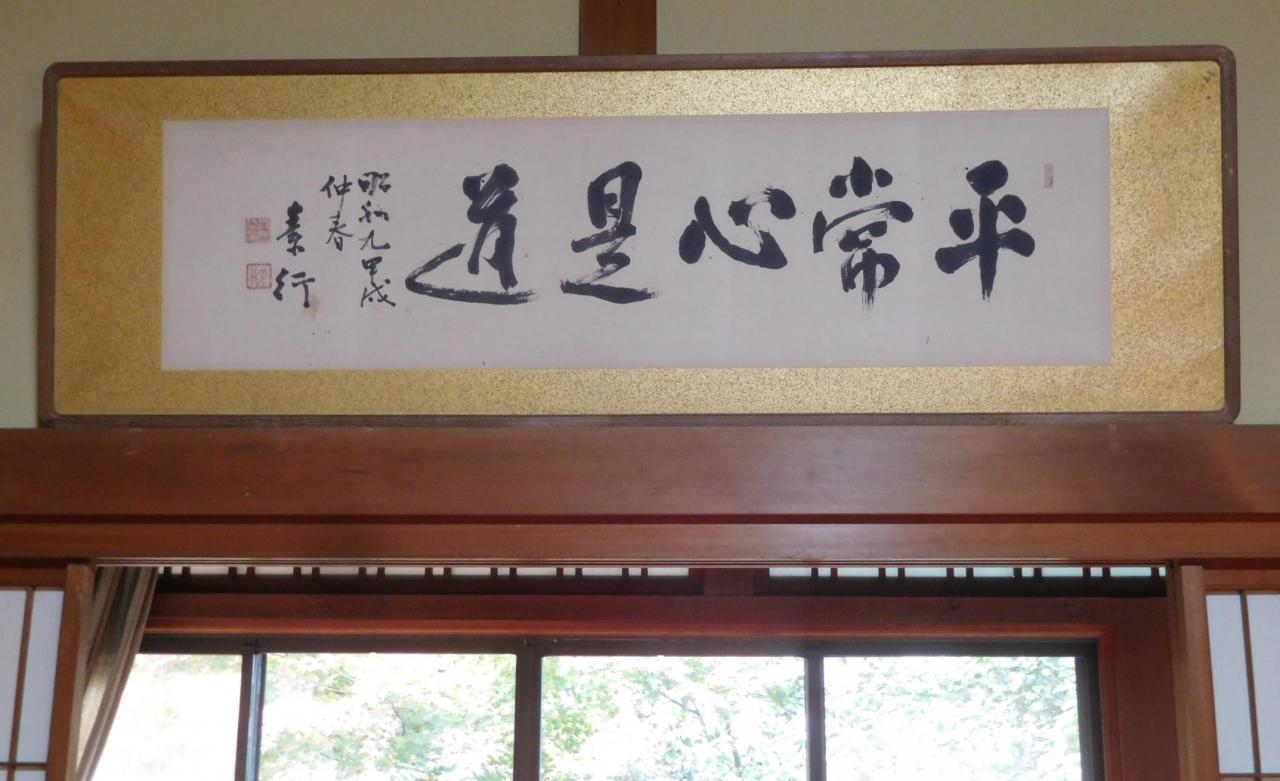 平常心是道
昭和九甲戌
仲春
素行